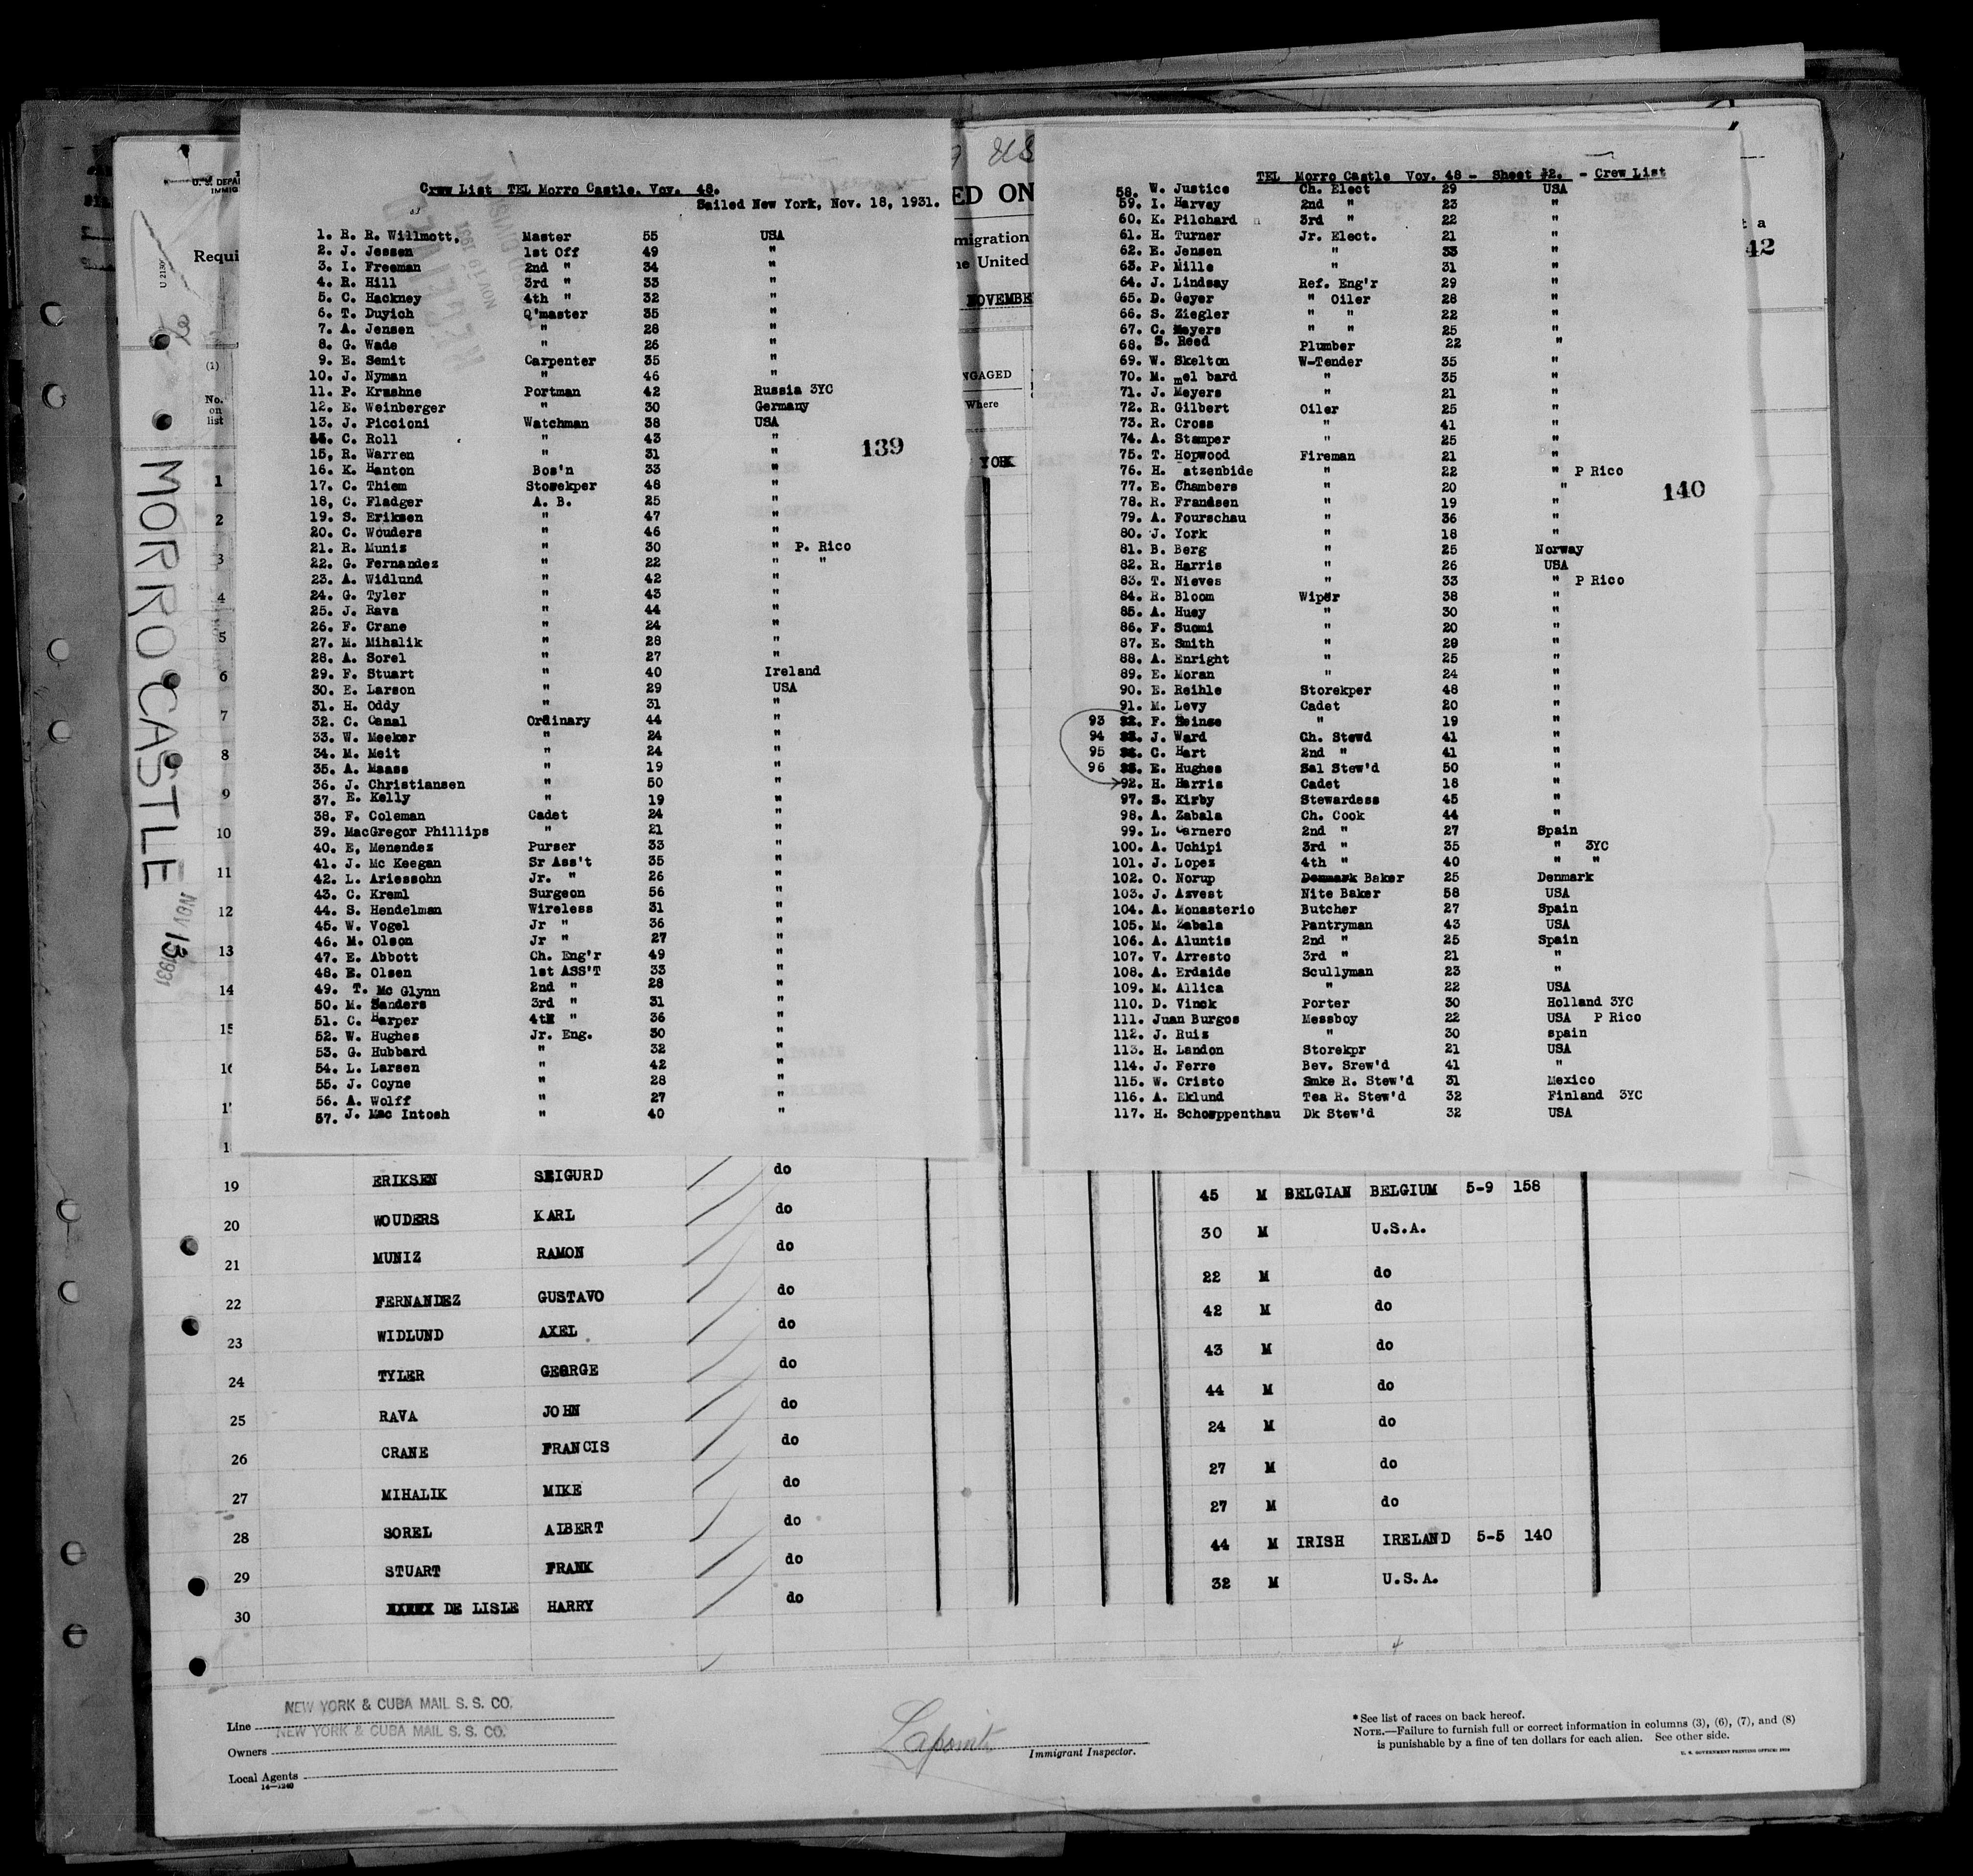 Crew List TEL Morro Castle. Voy. 48.
Sailed New York, Nov. 18, 1931.
1. R. R. Willmott, Master 55 USA
2. J. Jessen 1st Off 49 "
3. I. Freeman 2nd " 34 "
4. R. Hill 3rd " 33 "
5. C. Hackney 4th " 32 "
6. T. Duyich Q'master 35 "
7. A. Jensen " 28 "
8. G. Wade " 26 "
9. E. Semit Carpenter 35 "
10. J. Nyman " 46 "
11. P. Krashne Portman 42 Russia 3YC
12. E. Weinberger " 30 Germany
13. J. Piccioni Watchman 38 USA
C. Roll " 43 "
139
15, R. Warren " 31 "
16. K. Hanton Bos'n 33 "
17. C. Thiem Storekper 48 "
18, C. Fladger A. B. 25 "
19. S. Eriksen " 47 "
20. C. Wouders " 46 "
21. R. Munis " 30 " P. Rico
22. G. Fernandez " 22 " "
23. A. Widlund " 42 "
24. G. Tyler " 43 "
25. J. Rava " 44 "
26. F. Crane " 24 "
27. M. Mihalik " 28 "
28. A. Sorel " 27 "
29. F. Stuart " 40 Ireland
30. E. Larson " 29 USA
31. H. Oddy " 31 "
32. C. Canal Ordinary 44 "
33. W. Meeker " 24 "
34. M. Meit " 24 "
35. A. Maass " 19 "
36. J. Christiansen " 50 "
37. E. Kelly " 19 "
38. F. Coleman Cadet 24 "
39. MacGregor Phillips " 21 "
40. E, Menendez Purser 33 "
41. J. Mc Keegan Sr Ass't 35 "
42. L. Ariessohn Jr. " 26 "
43. C. Kreml Surgeon 56 "
44. S. Hendelman Wireless 31 "
45. W. Vogel Jr " 36 "
46. M. Olson Jr " 27 "
47. E. Abbott Ch. Eng'r 49 "
48. E. Olsen 1st ASS'T 33 "
49. T. Mc Glynn 2nd " 28 "
50. M. Sanders 3rd " 31 "
51. C. Harper 4tH " 36 "
52. W. Hughes Jr. Eng. 30 "
53. G. Hubbard " 32 "
54. L. Larsen " 42 "
55. J. Coyne " 28 "
56. A. Wolff " 27 "
57. J. Mac Intosh " 40 "
TEL Morro Castle Voy. 48 - Sheet #2. - Crew List
58. W. Justice Ch. Elect 29 USA
59. I. Harvey 2nd " 23 "
60. K. Pilchard 3rd " 22 "
61. H. Turner Jr. Elect. 21 "
62. E. Jensen " 33 "
63. P. Mille " 31 "
64. J. Lindsay Ref. Eng'r 29 "
65. D. Geyer " Oiler 28 "
66. S. Ziegler " " 22 "
67. C. Meyers " " 25 "
68. S. Reed Plumber 22 "
69. W. Skelton W-Tender 35 "
70. M. mel bard " 35 "
71. J. Meyers " 21 "
72. R. Gilbert Oiler 25 "
73. R. Cross " 41 "
74. A. Stamper " 25 "
75. T. Hopwood Fireman 21 "
76. H. atzenbide " 22 " P Rico
77. E. Chambers " 20 "
78. R. Frandsen " 19 "
140
79. A. Fourschau " 36 "
80. J. York " 18 "
81. B. Berg " 25 Norway
82. R. Harris " 26 USA
83. T. Nieves " 33 " P Rico
84. R. Bloom Wiper 38 "
85. A. Huey " 30 "
86. F. Suomi " 20 "
87. E. Smith " 29 "
88. A. Enright " 25 "
89. E. Moran " 24 "
90. E. Reihle Storekper 48 "
91. M. Levy Cadet 20 "
93 F. Heinse " 19 "
94 J. Ward Ch. Stewd 41 "
95 C. Hart 2nd " 41 "
96 E. Hughes Sal Stew'd 50 "
92. H. Harris Cadet 18 "
97. S. Kirby Stewardess 45 "
98. A. Zabala Ch. Cook 44 "
99. L. Carnero 2nd " 27 Spain
100. A. Uchipi 3rd " 35 " 3YC
101. J. Lopez 4th " 40 " "
102. O. Norup Denmark Baker 25 Denmark
103. J. Azvest Nite Baker 58 USA
104. A. Monasterio Butcher 27 Spain
105. M. Zabala Pantryman 43 USA
106. A. Aluntis 2nd " 25 Spain
107. V. Arresto 3rd " 21 "
108. A. Erdaide Scullyman 23 "
109. M. Allica " 22 USA
110. D. Vinck Porter 30 Holland 3YC
111. Juan Burgos Messboy 22 USA P Rico
112. J. Ruiz " 30 spain
113. H. Landon Storekpr 21 USA
114. J. Ferre Bev. Srew'd 41 "
115. W. Cristo Smke R. Stew'd 31 Mexico
116. A. Eklund Tea R. Stew'd 32 Finland 3YC
117. H. Schoeppenthau Dk Stew'd 32 USA
MORRO CASTLE
NOV 13 1931
RECEIVED
NOV 19 1931
U. S. DEPA
IMMIG
Requi
ED ON
migration
he United
NOVEMBE
NGAGED
Where
YORK
t a
42
(1)
No. on list
1
2
3
4
5
6
7
8
9
10
11
12
13
14
15
16
19 ERIKSEN SEIGURD do 45 M BELGIAN BELGIUM 5-9 158
20 WOUDERS KARL do 30 M U.S.A.
21 MUNIZ RAMON do 22 M do
22 FERNANDEZ GUSTAVO do 42 M do
23 WIDLUND AXEL do 43 M do
24 TYLER GEORGE do 44 M do
25 RAVA JOHN do 24 M do
26 CRANE FRANCIS do 27 M do
27 MIHALIK MIKE do 27 M do
28 SOREL AlBERT do 44 M IRISH IRELAND 5-5 140
29 STUART FRANK do 32 M U.S.A.
30 DE LISLE HARRY do
Line NEW YORK & CUBA MAIL S. S. CO.
Owners NEW YORK & CUBA MAIL S. S. CO.
Local Agents
14—1240
Lapoint
Immigrant Inspector.
* See list of races on back hereof.
NOTE.—Failure to furnish full or correct information in columns (3), (6), (7), and (8)
is punishable by a fine of ten dollars for each alien. See other side.
U. S. GOVERNMENT PRINTING OFFICE: 1929